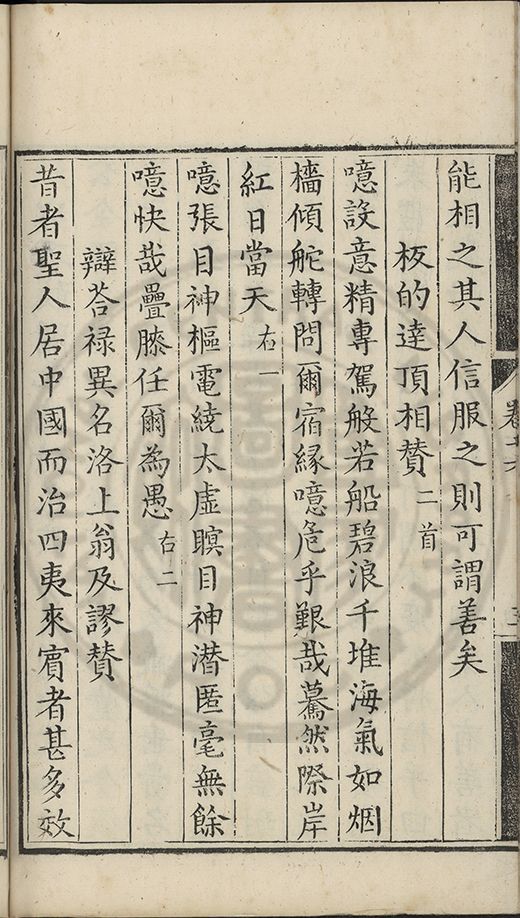 能相之其人信服之則可謂善矣
板的達頂相賛二首
噫設意精專駕般若船碧浪千堆海氣如烟
檣傾舵轉問爾宿緣噫危乎艱哉驀然際岸
紅日當天右一
噫張目神樞電繞太虛瞑目神潛匿毫無餘
噫快哉疊膝任爾為愚右二
辯荅祿異名洛上翁及謬賛
昔者聖人居中國而治四夷來賓者甚多效